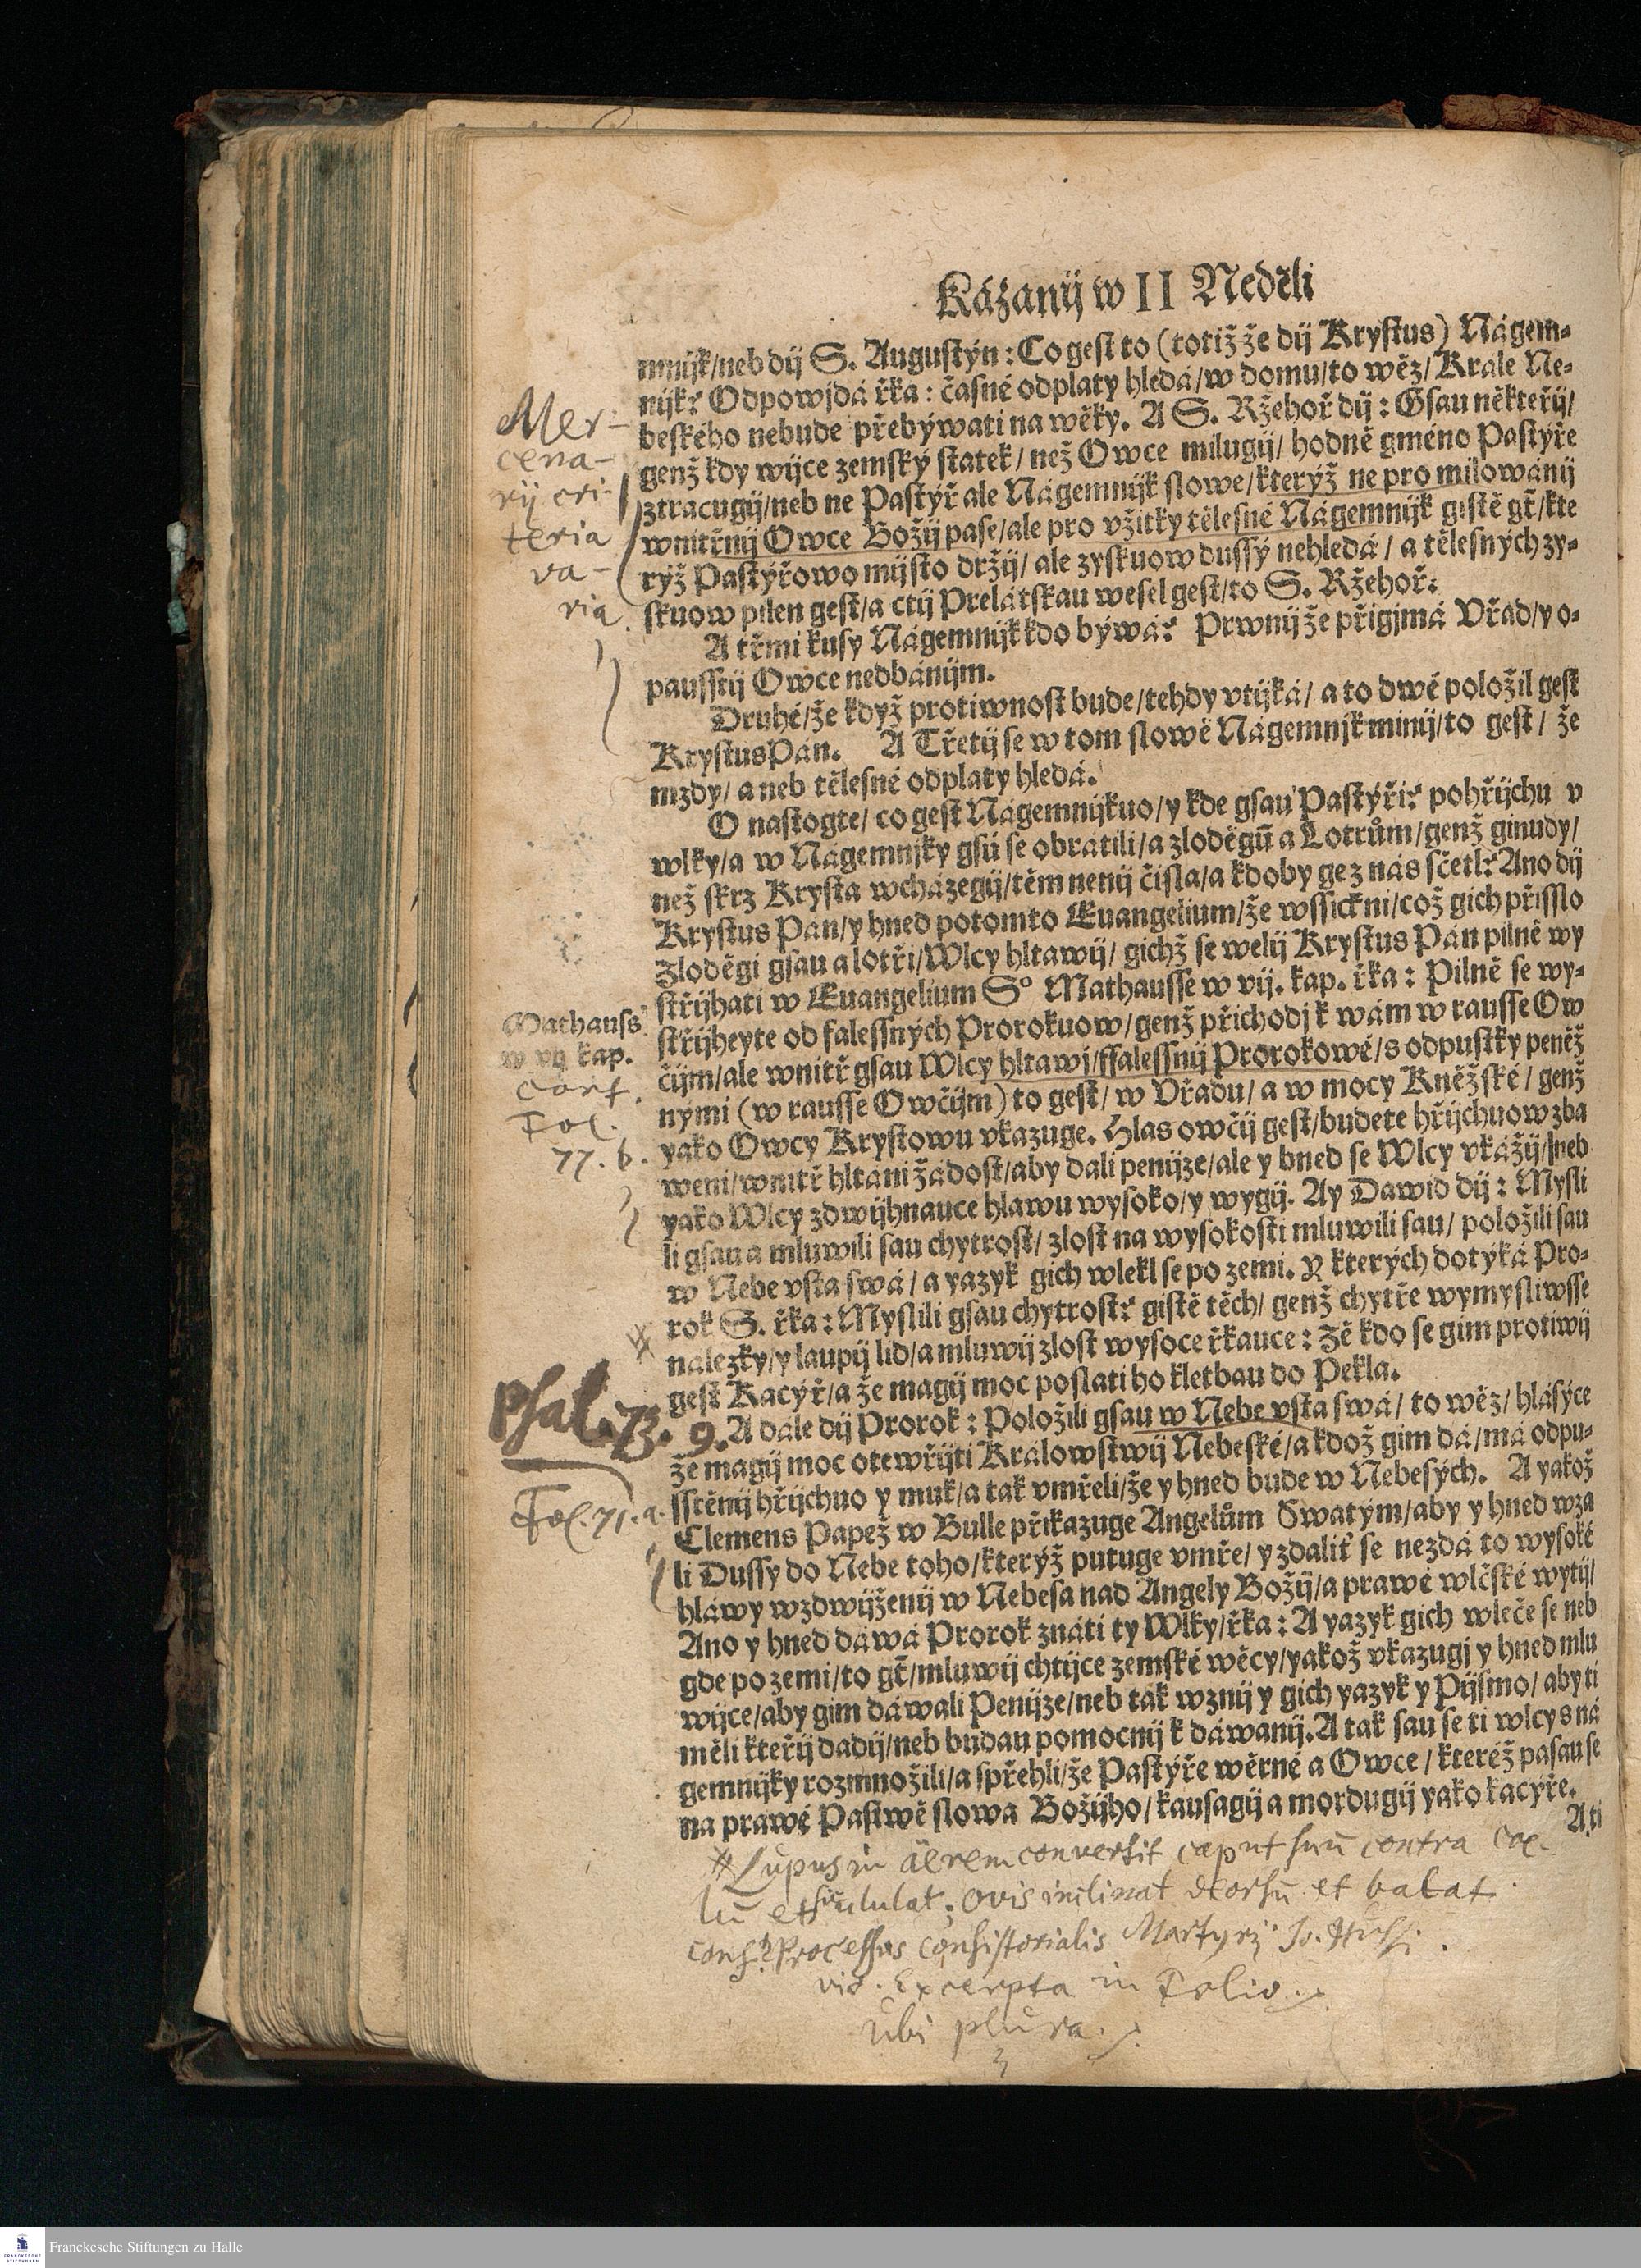 Kázanij w II Neděli
mnijk/neb dij S. Augustýn: Co gest to (totiž že dij Krystus) Nágem-
nijk? Odpowjdá řka: časné odplaty hledá/w domu/to wěz/Krale Ne-
beského nebude přebýwati na wěky. A S. Ržehoř dij: Gsau někteřij/
genž kdy wijce zemský statek/ než Owce milugij/ hodně gméno Pastýře
ztracugij/neb ne Pastýř ale Nágemnijk slowe/kterýž ne pro milowánij
wnitřnij Owce Božij pase/ale pro vžitky tělesné Nágemnijk gistě gt̃/kte
rýž Pastýřowo mijsto držij/ ale zyskuow dussý nehledá/ a tělesných zy-
skuow pilen gest/a ctij Prelátskau wesel gest/to S. Ržehoř.
A třmi kusy Nágemnijk kdo býwá? Prwnij že přigjmá Vřad/y o-
pausstij Owce nedbánijm.
Druhé/že když protiwnost bude/tehdy vtijká/ a to dwé položil gest
Krystus Pán. A Třetij se w tom slowě Nágemnjk minij/to gest/ že
mzdy/ a neb tělesné odplaty hledá.
O nastogte/ co gest Nágemnijkuo/y kde gsau Pastýři? pohřijchu v
wlky/a w Nágemnjky gsú se obrátili/a zloděgū a Lotrům/genž ginudy/
než skrz Krysta wcházegij/těm nenij čisla/a kdoby ge z nás sčetl? Ano dij
Krystus Pán/y hned potomto Euangelium/že wssickni/což gich přisslo
Zloděgi gsau a lotři/Wlcy hltawij/ gichž se welij Krystus Pán pilně wy
střijhati w Euangelium So Mathausse w vij. kap. řka: Pilně se wy-
střijheyte od falessných Prorokuow/genž přichodj k wám w rausse Ow
čijm/ale wnitř gsau Wlcy hltawj/ffalessnij Prorokowé/s odpustky peněž
nými (w rausse Owčijm) to gest/ w Vřadu/ a w mocy Kněžské/ genž
yako Owcy Krystowu vkazuge. Hlas owčij gest/budete hřijchuow zba
weni/wnitř hltáni žádost/aby dali penijze/ale y hned se Wlcy vkážij/neb
yako Wlcy zdwijhnauce hlawu wysoko/y wygij. Ay Dawid dij: Mysli
li gsau a mluwili sau chytrost/ zlost na wysokosti mluwili sau/ položili sau
w Nebe vsta swá/ a yazyk gich wlekl se po zemi. Y kterých dotýká Pro-
rok S. řka: Myslili gsau chytrost? gistě těch/ genž chytře wymysliwsse
nálezky/y laupij lid/a mluwij zlost wysoce řkauce: Zě kdo se gim protiwij
gest Kacýř/a že magij moc poslati ho kletbau do Pekla.
A dále dij Prorok: Položili gsau w Nebe vsta swá/ to wěz/ hlásyce
že magij moc otewřijti Králowstwij Nebeské/a kdož gim dá/má odpu-
sstěnij hřijchuo y muk/a tak vmřeli/že y hned bude w Nebesých. A yakož
Clemens Papež w Bulle přikazuge Angelům Swatým/aby y hned wza
li Dussy do Nebe toho/kterýž putuge vmře/ y zdaliť se nezdá to wysoké
hlawy wzdwijženij w Nebesa nad Angely Božij/a prawé wlčské wytij/
Ano y hned dáwá Prorok znáti ty Wlky/řka: A yazyk gich wleče se neb
gde po zemi/to gt̃/mluwij chtijce zemské wěcy/yakož vkazugj y hned mlu
wijce/aby gim dáwali Penijze/neb tak wznij y gich yazyk y Pijsmo/ aby ti
měli kteřij dadij/neb budau pomocnij k dáwanij. A tak sau se ti wlcy s ná
gemnijky rozmnožili/a spřehli/že Pastýře wěrné a Owce/ kteréž pasau se
na prawé Pastwě slowa Božijho/kausagij a mordugij yako kacýře.
A ti
Mer-
cena-
rij cri-
teria
va-
ria.
Mathauss
w vij kap.
conf.
Fol.
77. b.
Psal. 73. 9.
Fol. 71. a.
# Lupus in äerem convertit caput suū contra coe-
lū et sic ululat; ovis inclinat deorsū et balat.
Processus Consistorialis Martyrij Jo. Hussi.
vid. Excerpta in Folio.
Ubi plura.
Franckesche Stiftungen zu Halle